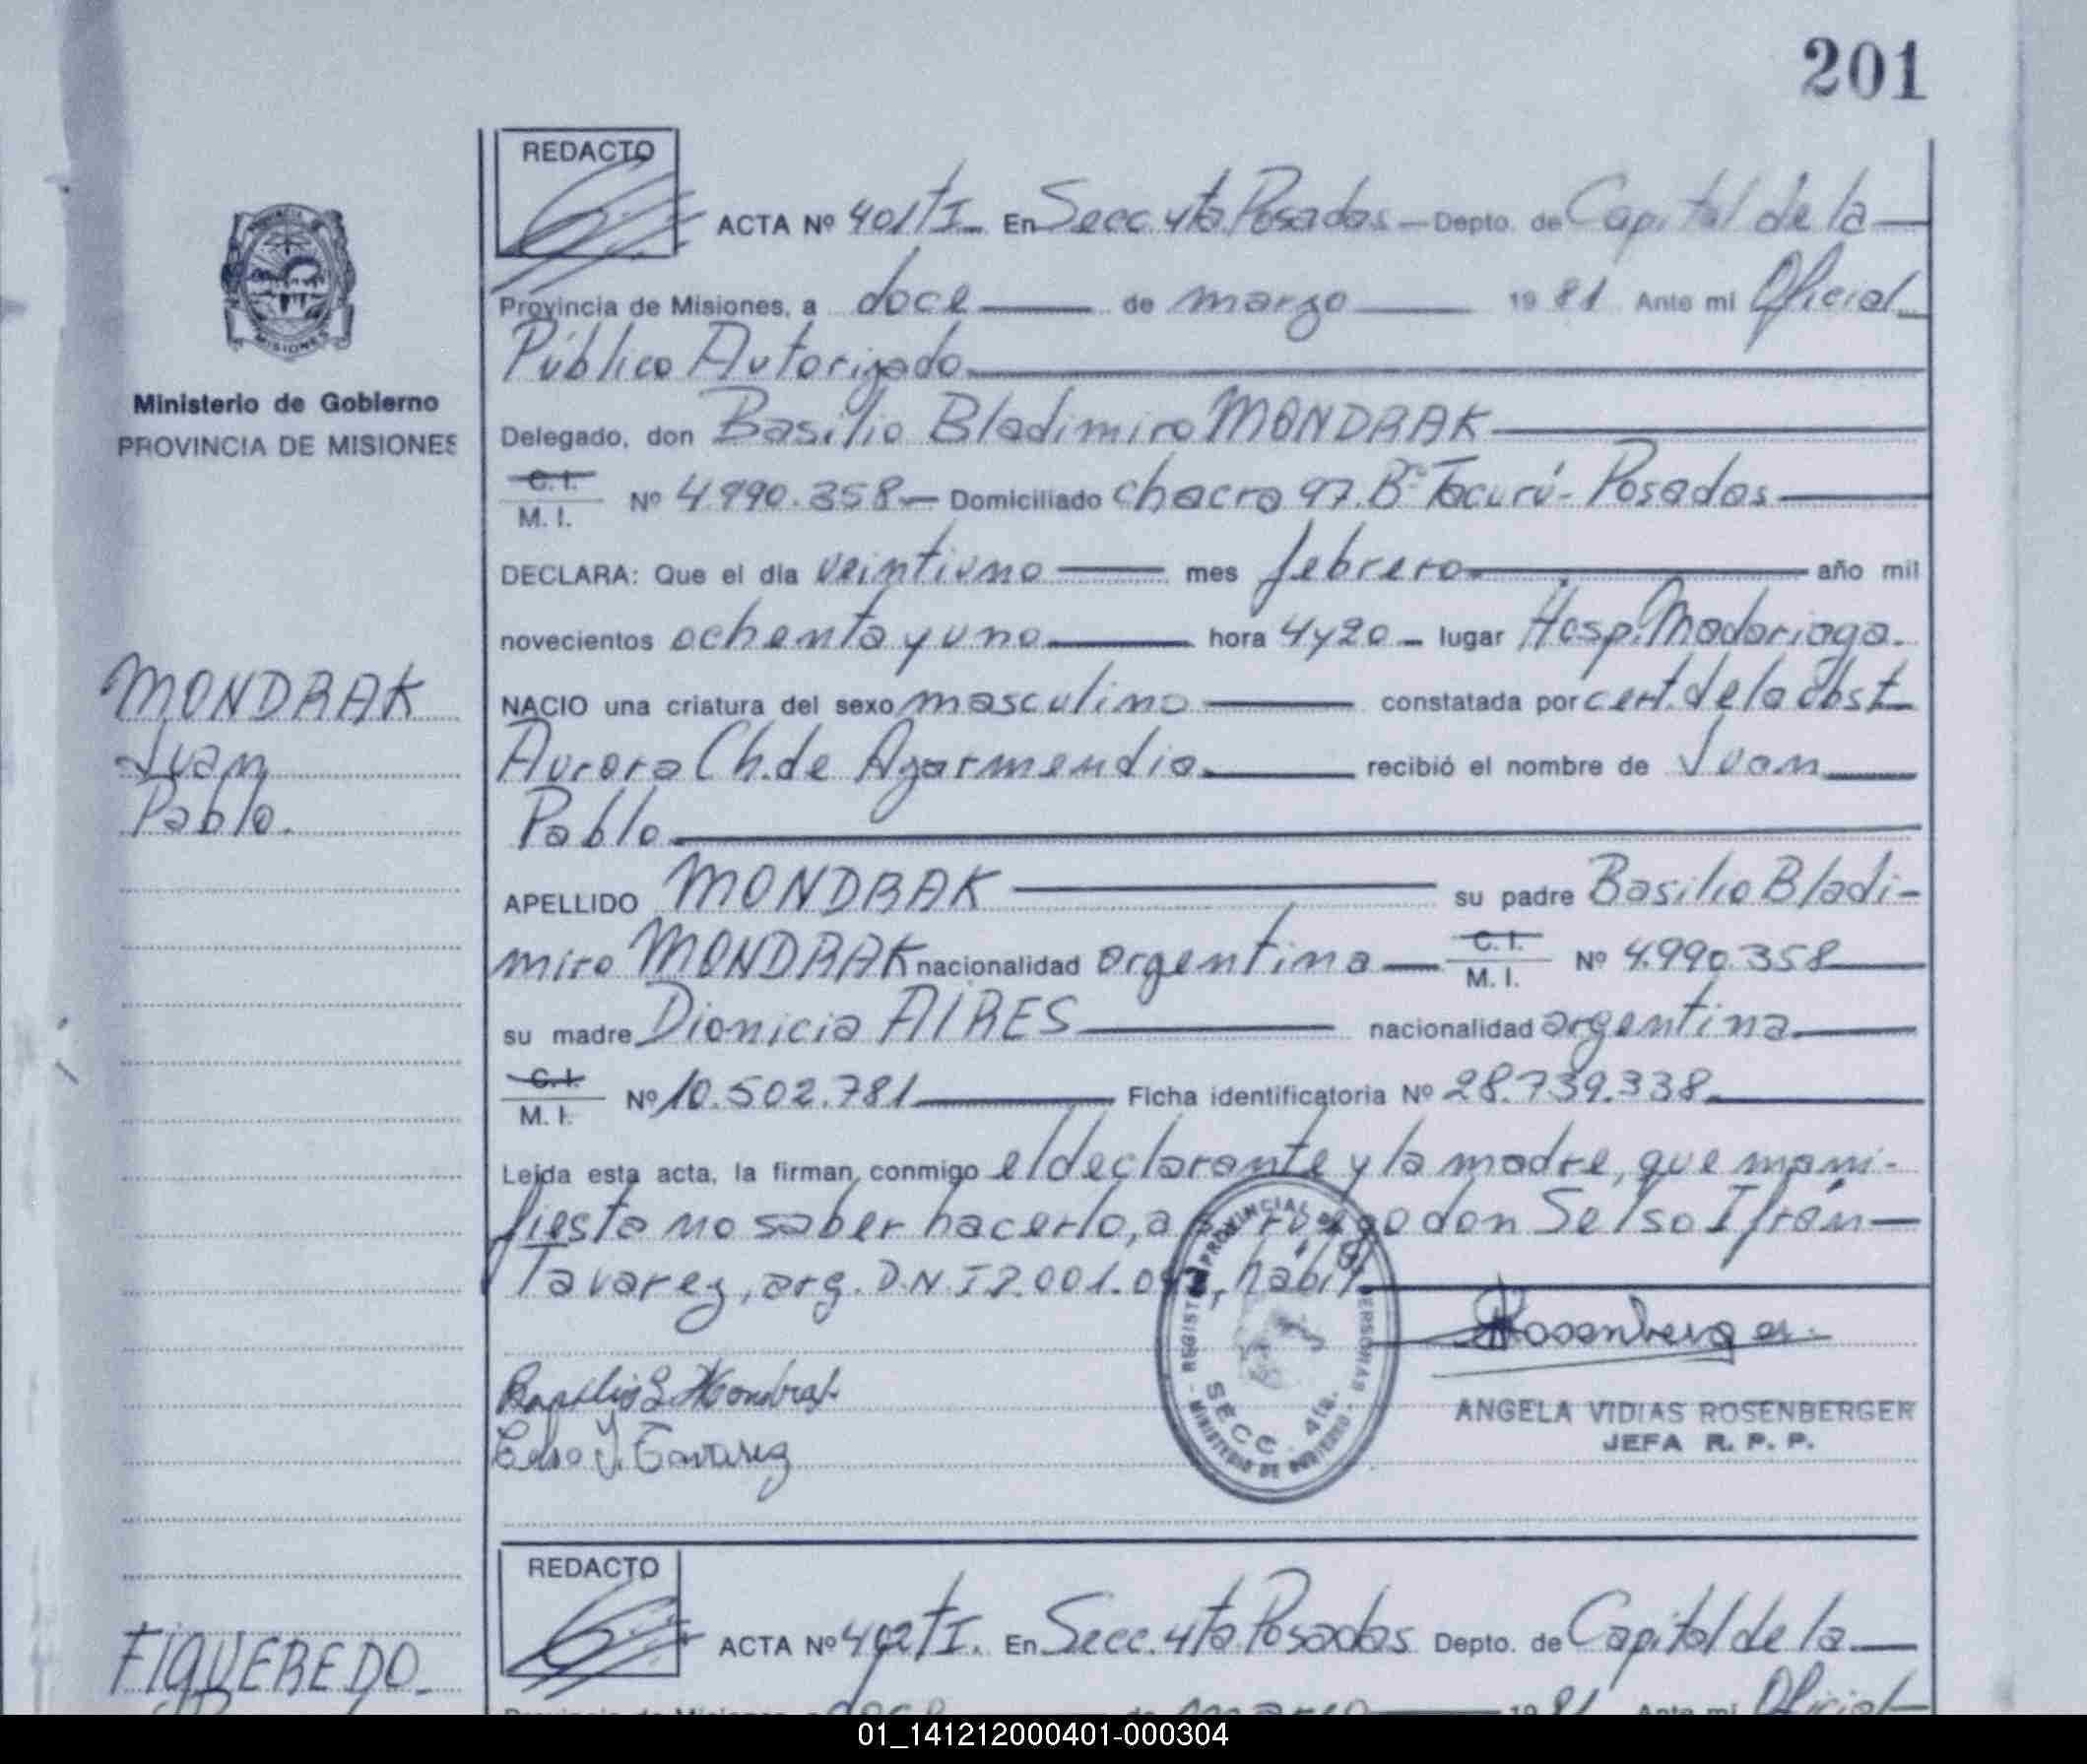 201
REDACTO
ACTA Nº 401/TI- En Secc. 4ta Posadas - Depto. de Capital de la
Provincia de Misiones, a doce de marzo 1981 Ante mi Oficial
Público Autorizado
Ministerio de Gobierno
PROVINCIA DE MISIONES
Delegado, don Basilio Bladimiro MONDRAK
C. I.
M. I. Nº 4.990.358 - Domiciliado chacra 97. Bº Tacurú - Posadas
DECLARA: Que el dia veintiuno mes febrero año mil
novecientos ochenta y uno hora 4 y 20 - lugar Hosp. Madariaga.
MONDRAK
Juan
Pablo.
NACIO una criatura del sexo masculino constatada por cert. de la obst.
Aurora Ch. de Azarmendia recibió el nombre de Juan
Pablo
APELLIDO MONDRAK su padre Basilio Bladi-
miro MONDRAK nacionalidad argentina C. I. M. I. Nº 4.990.358
su madre Dionicia AIRES nacionalidad argentina
C. I.
M. I. Nº 10.502.781 Ficha identificatoria Nº 28.739.338
Leida esta acta, la firman conmigo el declarante y la madre, que mani-
fiesta no saber hacerlo, a ruego don Selso Ifrán
Tavarez, arg. D.N.I , hábil
Rosenberger
Basilio B. Mondrak
Celso Y. Tavarez
REGISTRO PROVINCIAL DE LAS PERSONAS
SECC. 4ta.
MINISTERIO DE GOBIERNO
ANGELA VIDIAS ROSENBERGER
JEFA R. P. P.
REDACTO
ACTA Nº 402/TI. En Secc. 4ta Posadas Depto. de Capital de la
FIGUEREDO
Provincia de Misiones, a doce de marzo 1981 Ante mi Oficial
01_141212000401-000304